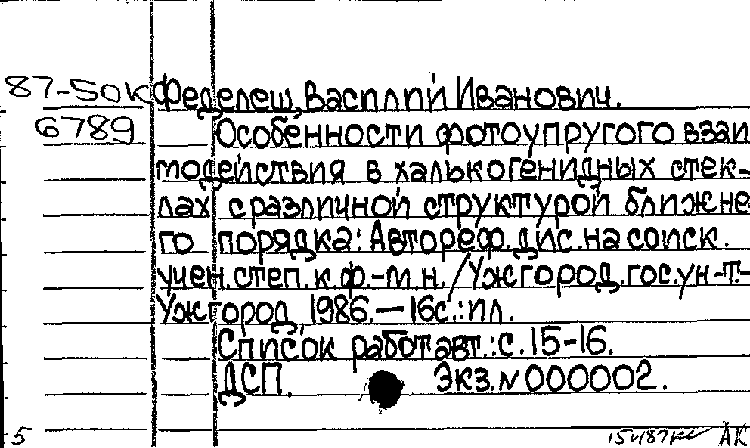 87-50к Феделеш, Василий Иванович.
6789 Особенности фотоупругого взаи
модействия в халькогенидных стек-
лах с различной структурой ближне
го порядка: Автореф. дис. на соиск.
учен. степ. к.ф.-м.н. / Ужгород. гос. ун-т.-
Ужгород, 1986.—16с.:ил.
Список работ авт.: с. 15-16.
ДСП. Экз. N 000002.
5 АК